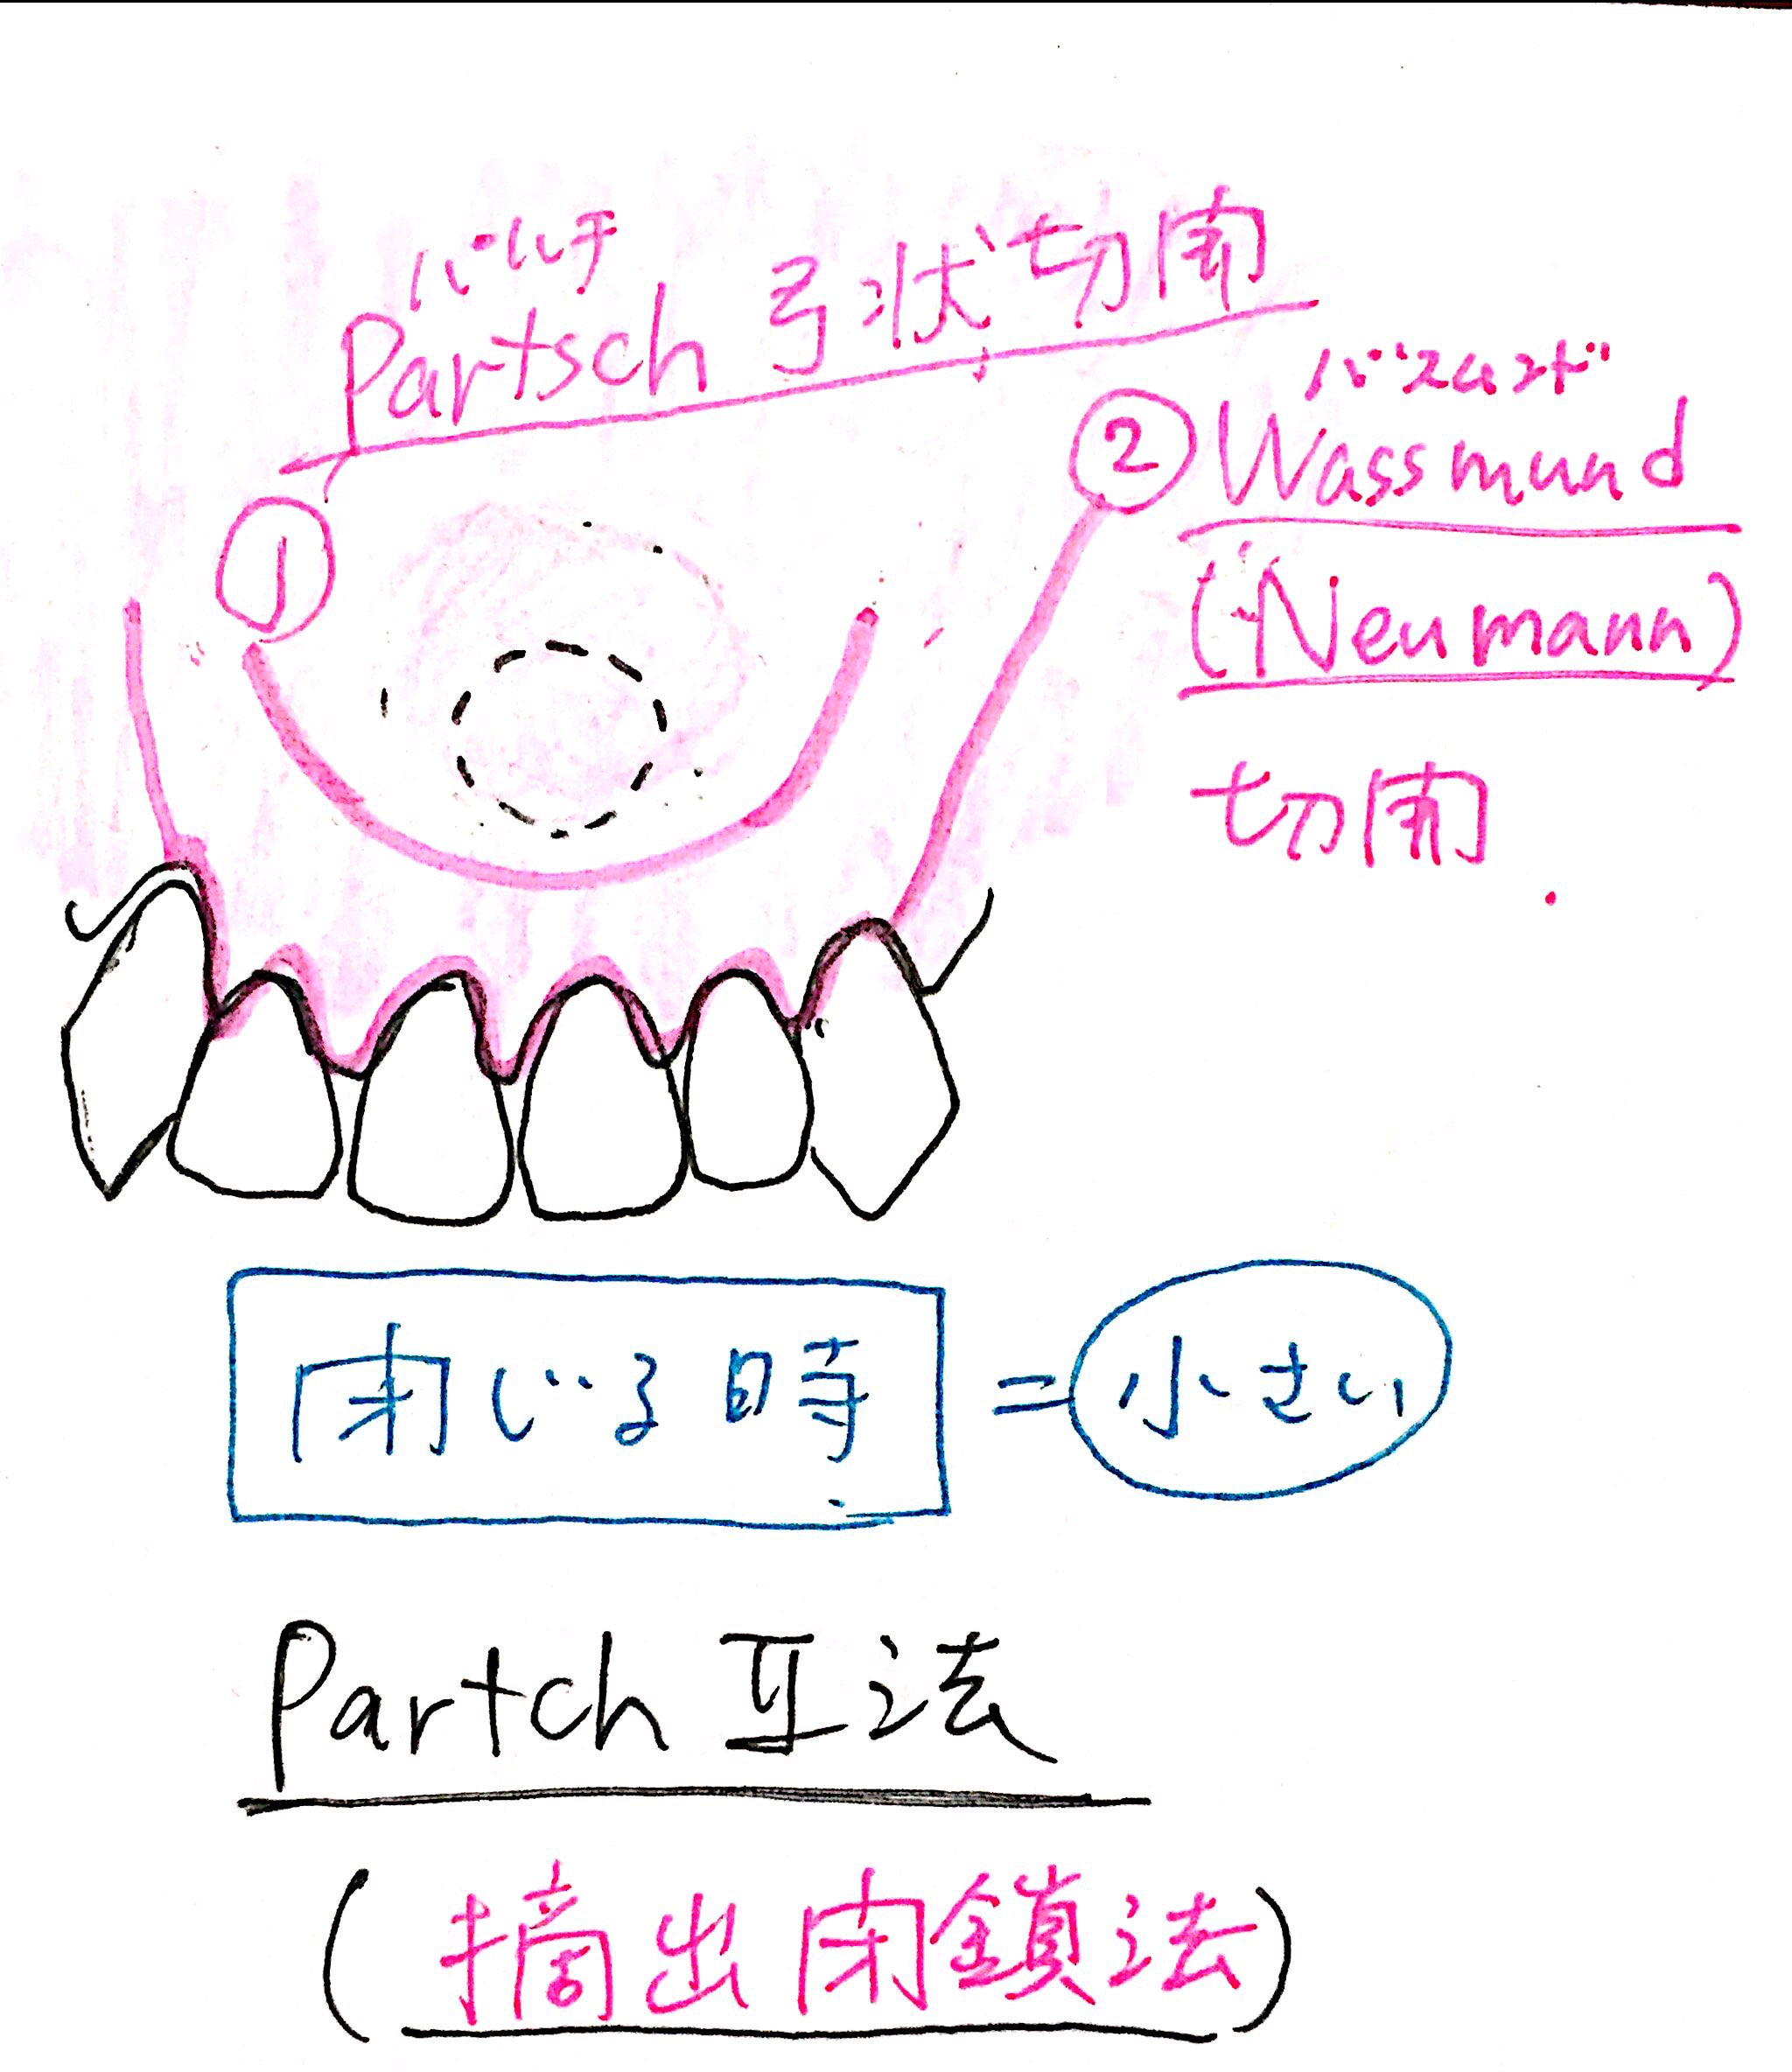 パルチ
Partsch 弓状切開
①
バスムンド
② Wassmund
(Neumann)
切開
閉じる時 = 小さい
Partch 互法
(摘出閉鎖法)